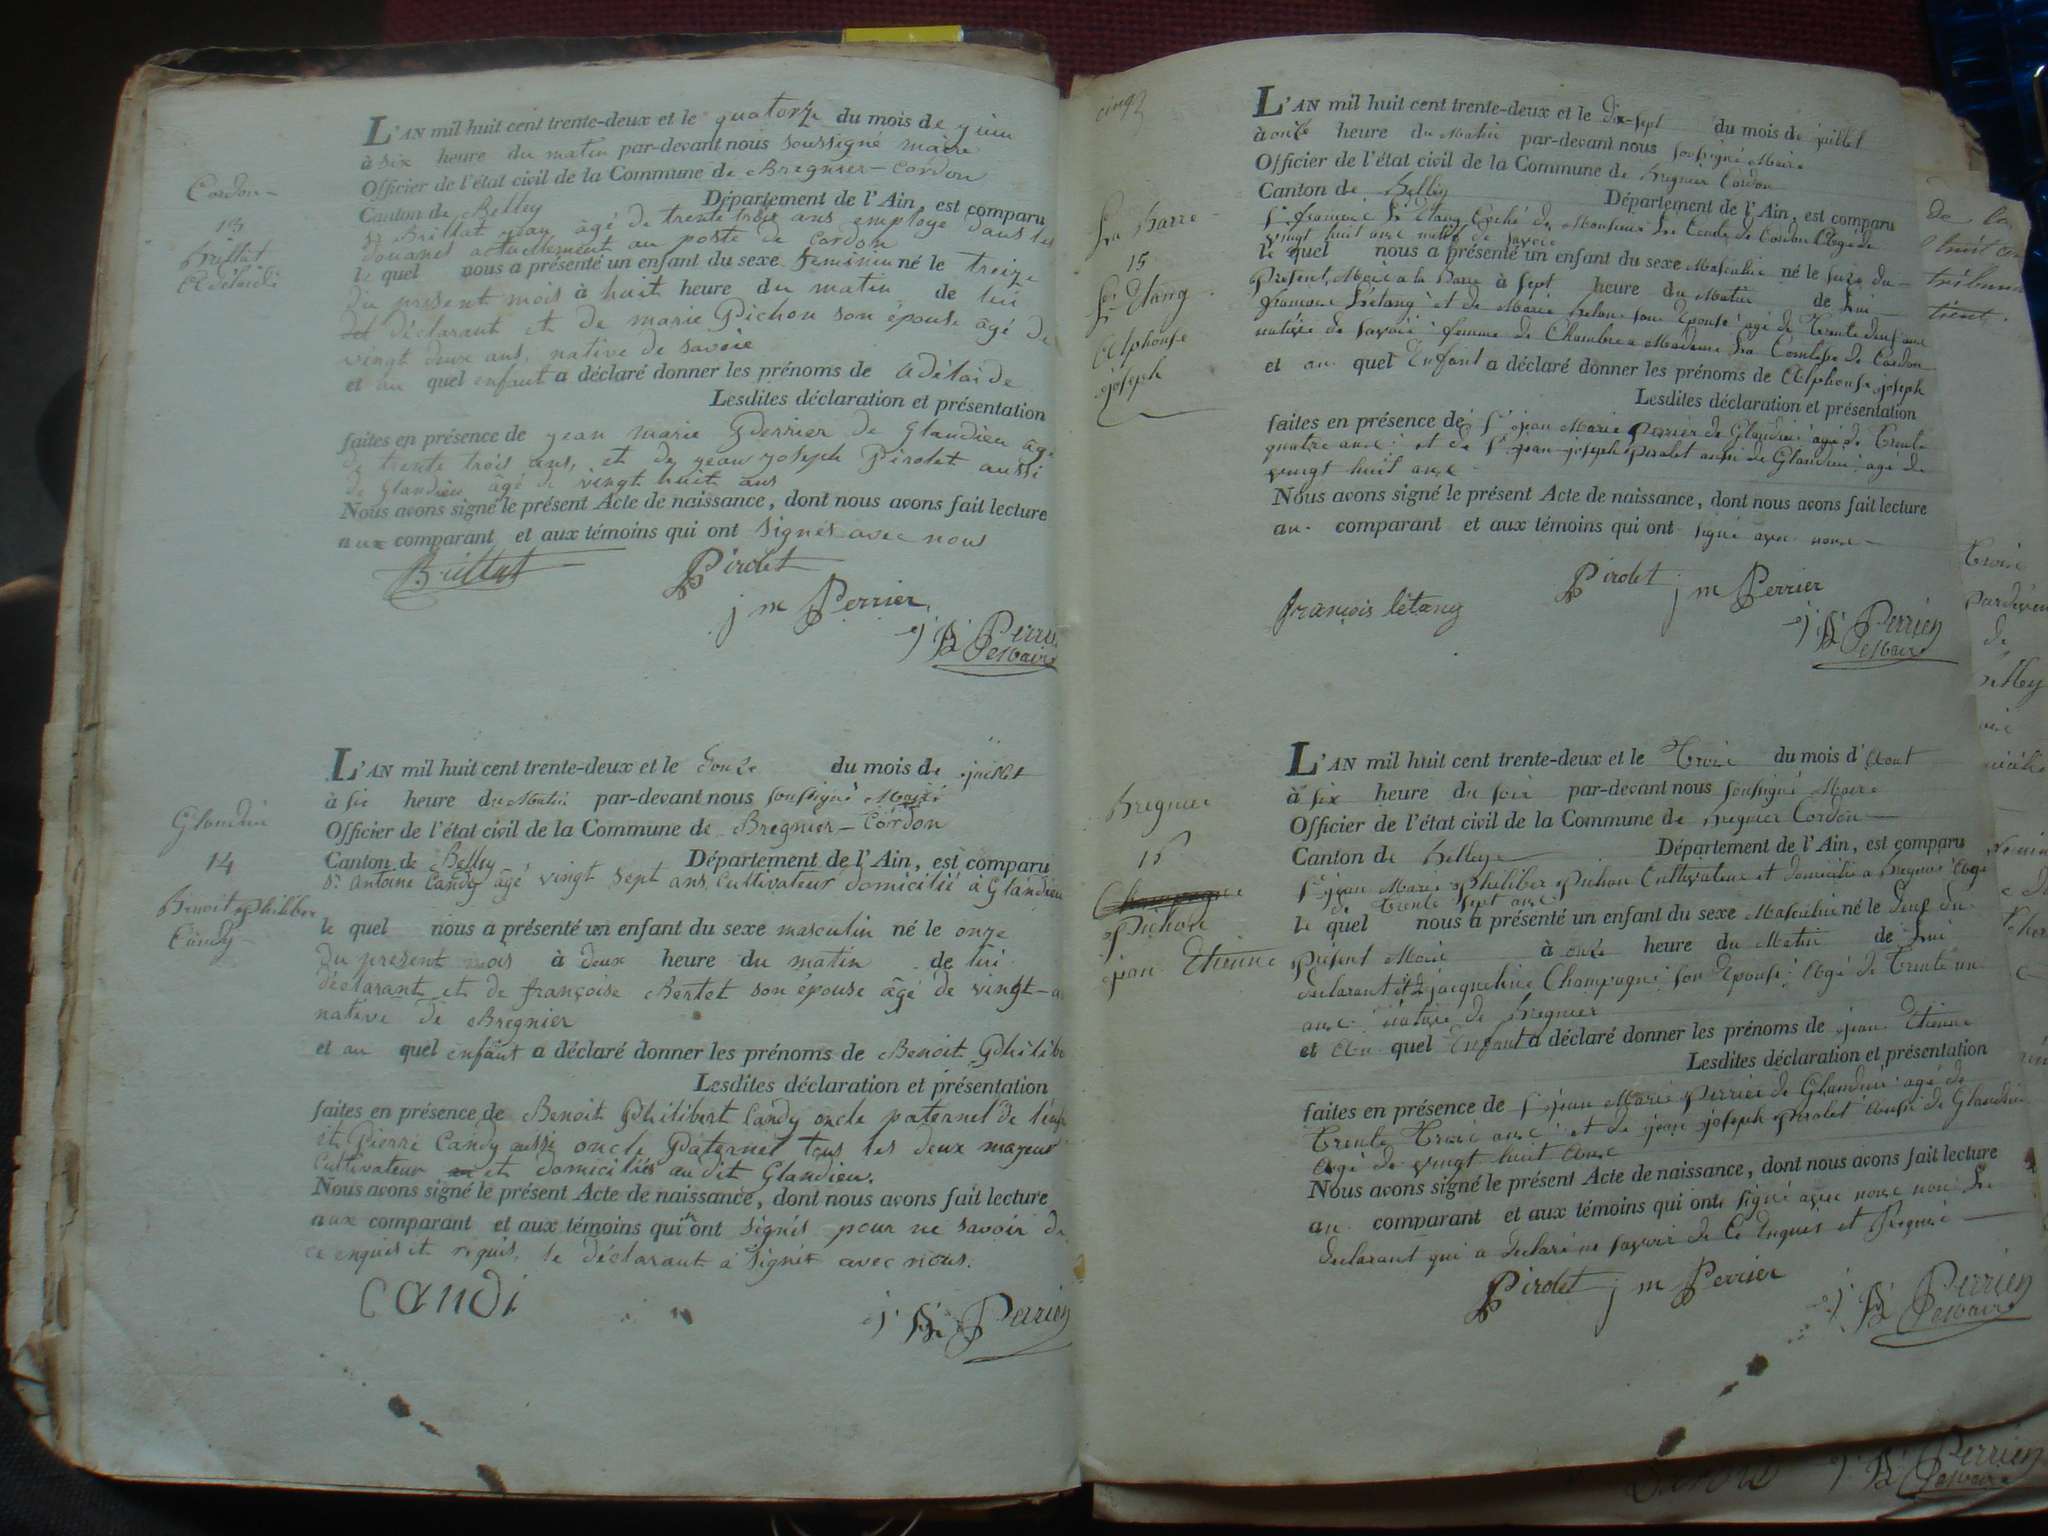 Cordon
13
Brillat
Adélaïde
L'AN mil huit cent trente-deux et le quatorze du mois de juin
à six heure du matin par-devant nous soussigné maire
Officier de l'état civil de la Commune de Bregnier-Cordon
Canton de Belley Département de l'Ain, est comparu
Sr Brillat jean âgé de trente trois ans employé dans les
douanes actuellement au poste de Cordon
le quel nous a présenté un enfant du sexe feminin né le treize
du present mois à huit heure du matin de lui
déclarant et de marie Pichon son épouse âgé de
vingt deux ans, native de Savoie
et au quel enfant a déclaré donner les prénoms de Adélaïde
Lesdites déclaration et présentation
faites en présence de jean marie Perrier de Glandieu âgé
de trente trois ans, et de jean joseph Pirolet aussi
de Glandieu âgé de vingt huit ans
Nous avons signé le présent Acte de naissance, dont nous avons fait lecture
aux comparant et aux témoins qui ont signés avec nous
Brillat Pirolet
j m Perrier
Perrier
maire
Glandieu
14
Benoit Philiber
Candy
L'AN mil huit cent trente-deux et le douze du mois de juillet
à six heure du Matin par-devant nous soussigné Maire
Officier de l'état civil de la Commune de Bregnier-Cordon
Canton de Belley Département de l'Ain, est comparu
Sr Antoine Candy âgé vingt sept ans, Cultivateur domicilié à Glandieu
le quel nous a présenté un enfant du sexe masculin né le onze
du present mois à deux heure du matin de lui
déclarant et de françoise Bertet son épouse âgé de vingt-
native de Bregnier
et au quel enfant a déclaré donner les prénoms de Benoit Philibe
Lesdites déclaration et présentation
faites en présence de Benoit Philibert Candy oncle paternel de l'enf
et Pierre Candy aussi oncle Paternel tous les deux majeur
Cultivateur et domiciliés audit Glandieu.
Nous avons signé le présent Acte de naissance, dont nous avons fait lecture
aux comparant et aux témoins qui n'ont signés pour ne savoir de
ce enquis et requis, le déclarant a signér avec nous.
candi
Perrier
cinq
La Barre
15
L'Etang
Alphonse
joseph
L'AN mil huit cent trente-deux et le dix-sept du mois de juillet
à onze heure du Matin par-devant nous soussigné Maire
Officier de l'état civil de la Commune de Bregnier Cordon
Canton de Belley Département de l'Ain, est comparu
Sr françois L'étang de Monsieur Le Comte de Cordon Agé de
vingt huit ans natif de Savoie
le quel nous a présenté un enfant du sexe Masculin né le seize du
Present Mois a la Barre à sept heure du Matin de lui
françois L'étang et de Marie son Epouse agé de Trente deux ans
native de Savoie femme de Chambre a Madame La Comtesse de Cordon
et au quel Enfant a déclaré donner les prénoms de Alphonse joseph
Lesdites déclaration et présentation
faites en présence de Sr jean Marie Perrier de Glandieu agé de Trente
quatre ans et de Sr jean joseph Pirolet aussi de Glandieu agé de
vingt huit ans
Nous avons signé le présent Acte de naissance, dont nous avons fait lecture
au comparant et aux témoins qui ont signé avec nous
Pirolet j m Perrier
françois létang
Perrier
maire
Bregnier
16
Champagne
Pichon
jean Etienne
L'AN mil huit cent trente-deux et le Trois du mois d'Aout
à six heure du soir par-devant nous soussigné Maire
Officier de l'état civil de la Commune de Bregnier Cordon
Canton de Belley Département de l'Ain, est comparu
Sr jean Marie Philiber Pichon Cultivateur et domicilié a Bregnier Agé
de Trente sept ans
le quel nous a présenté un enfant du sexe Masculin né le deux du
présent Mois à onze heure du Matin de lui
declarant et de jacqueline Champagne son Epouse Agé de Trente un
ans native de Bregnier
et Au quel Enfant a déclaré donner les prénoms de jean Etienne
Lesdites déclaration et présentation
faites en présence de Sr jean Marie Perrier de Glandieu agé de
Trente Trois ans et de jean joseph Pirolet Aussi de Glandieu
Agé de vingt huit Ans
Nous avons signé le présent Acte de naissance, dont nous avons fait lecture
au comparant et aux témoins qui ont signé avec nous non Le
declarant qui a declaré ne savoir de Ce Enquis et Requis
Pirolet j m Perrier
Perrier
maire
Perrier
maire